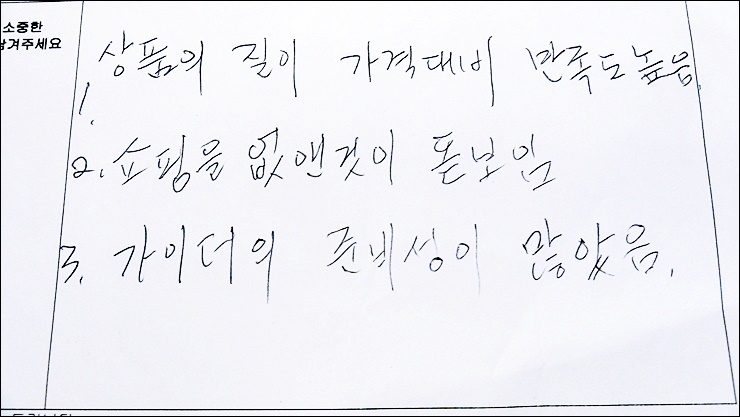 소중한
남겨주세요
1. 상품의 질이 가격대비 만족도높음.
2. 쇼핑을 없앤것이 돋보임
3. 가이더의 준비성이 많았음.